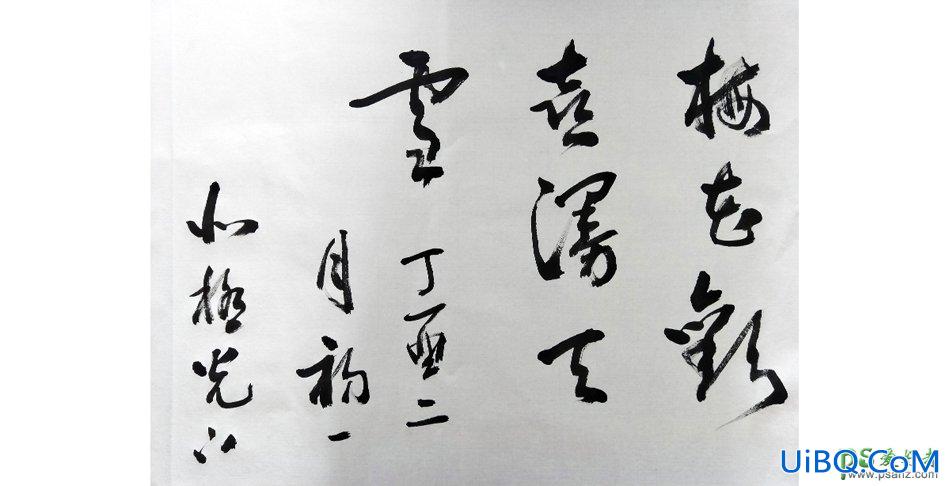 梅花歡
喜漫天
雪 丁酉二
月初一
北極光
UiBQ.CoM
www.psahz.com